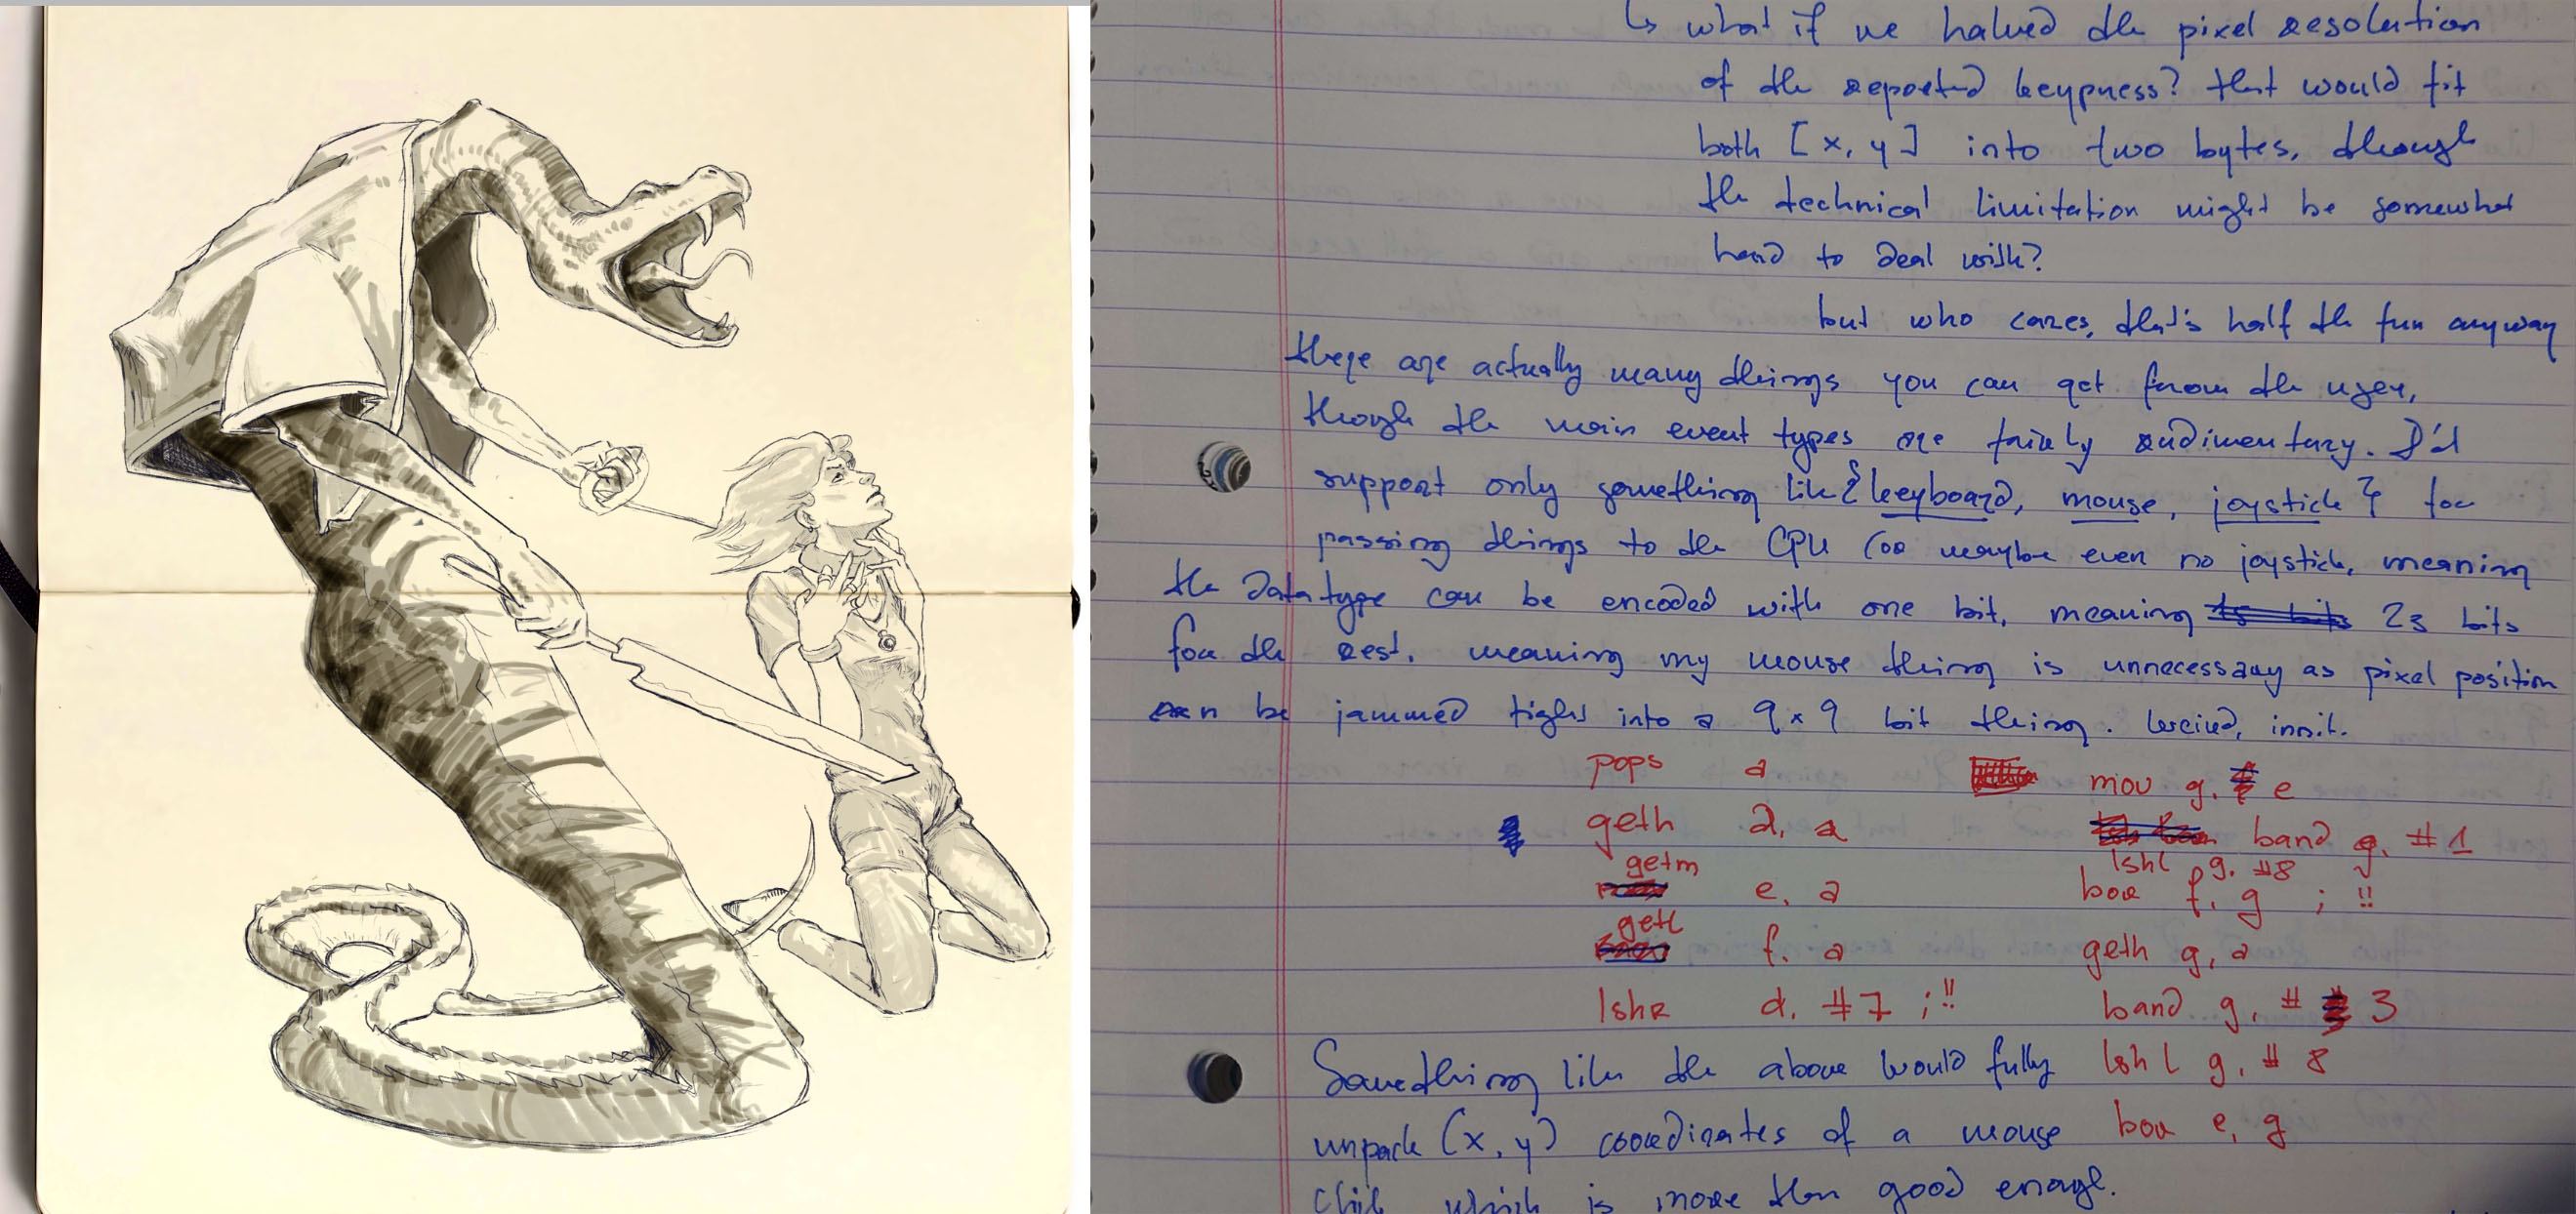 ↳ what if we halved the pixel resolution
of the reported keypress? that would fit
both [x, y] into two bytes, though
the technical limitation might be somewhat
hard to deal with?
but who cares, that's half the fun anyway
there are actually many things you can get from the user,
though the main event types are fairly rudimentary. I'd
support only something like { keyboard, mouse, joystick } for
passing things to the CPU (or maybe even no joystick, meaning
the data type can be encoded with one bit, meaning 23 bits
for the rest. meaning my mouse thing is unnecessary as pixel position
can be jammed tight into a 9x9 bit thing. weird, innit.
pops a
geth d, a
getm e, a
getl f, a
lshr d, #7 ; !!
mov g, e
band g, #1
lshl g, #8
bor f, g ; !!
geth g, a
band g, # 3
lshl g, # 8
bor e, g
Something like the above would fully
unpack (x, y) coordinates of a mouse
click which is more than good enough.